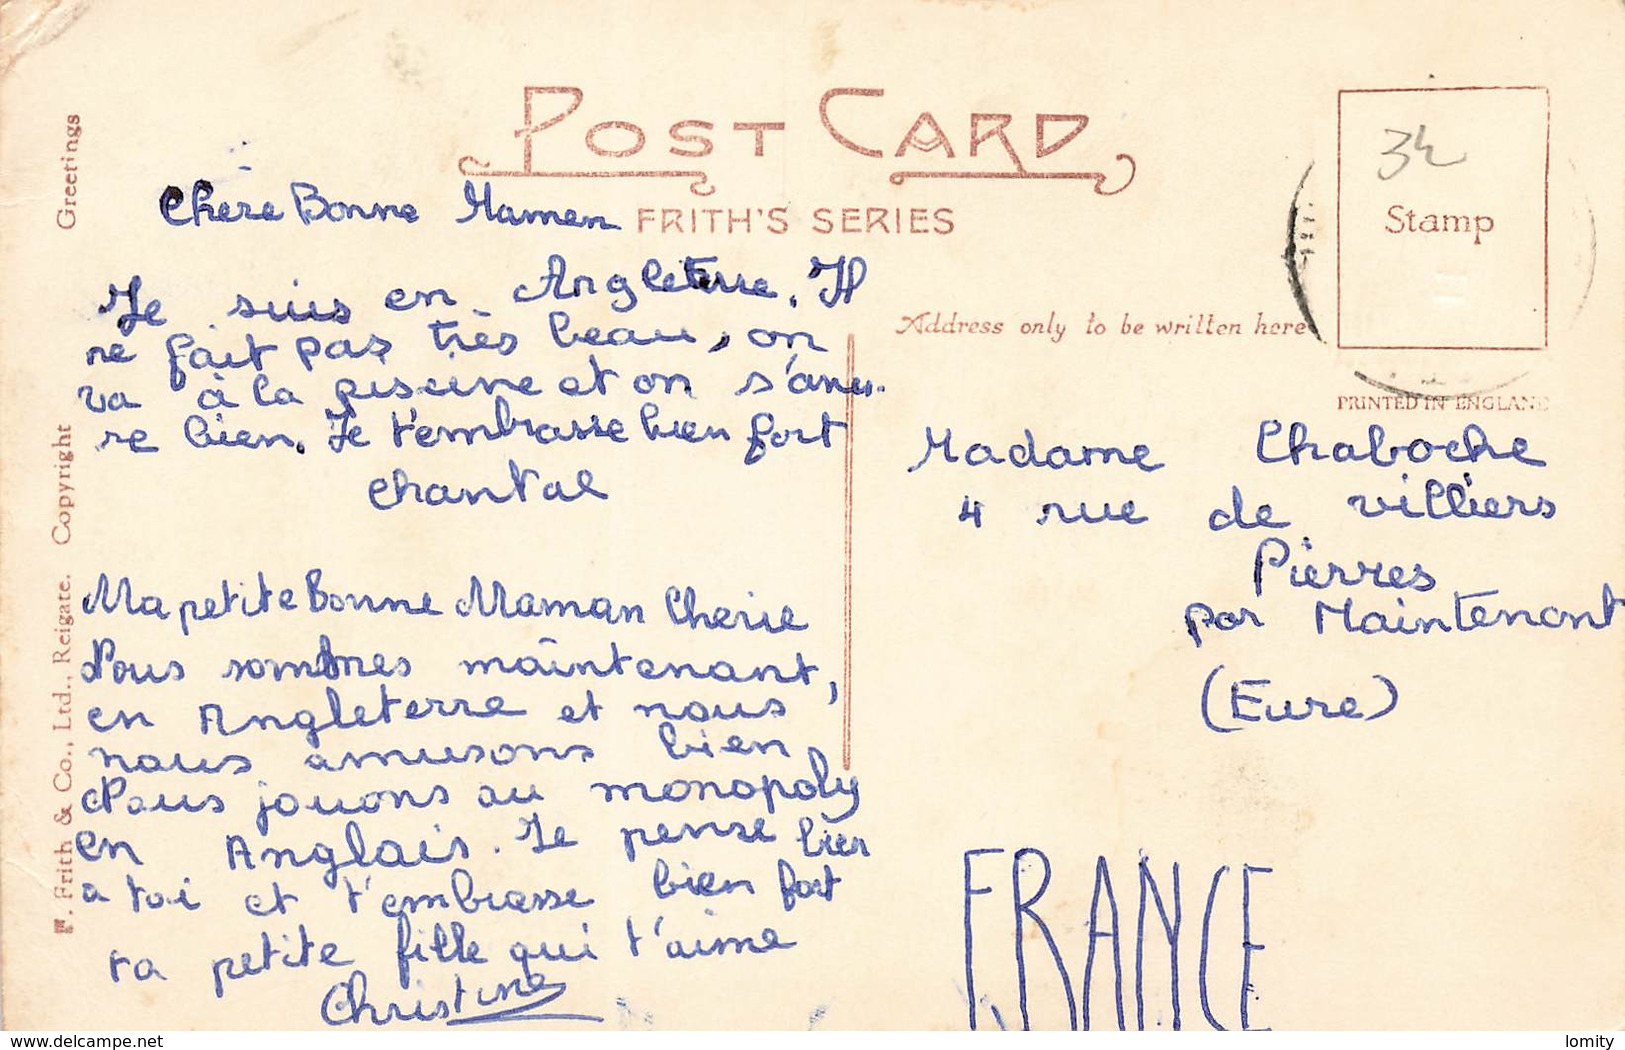 POST CARD
FRITH'S SERIES
Greetings
F. Frith & Co., Ltd., Reigate. Copyright
34
Stamp
PRINTED IN ENGLAND
Address only to be written here
Chère Bonne Maman
Je suis en Angleterre. Il
ne fait pas très beau, on
va à la piscine et on s'amu-
re bien. Je t'embrasse bien fort
Chantal
Ma petite Bonne Maman Cherie
Nous sommes maintenant,
en Angleterre et nous
nous amusons bien
Nous jouons au monopoly
en Anglais. Je pense bien
a toi et t'embrasse bien fort
ta petite fille qui t'aime
Christine
Madame Chaboche
4 rue de villiers
Pierres
par Maintenont
(Eure)
FRANCE
www.delcampe.net
lomity